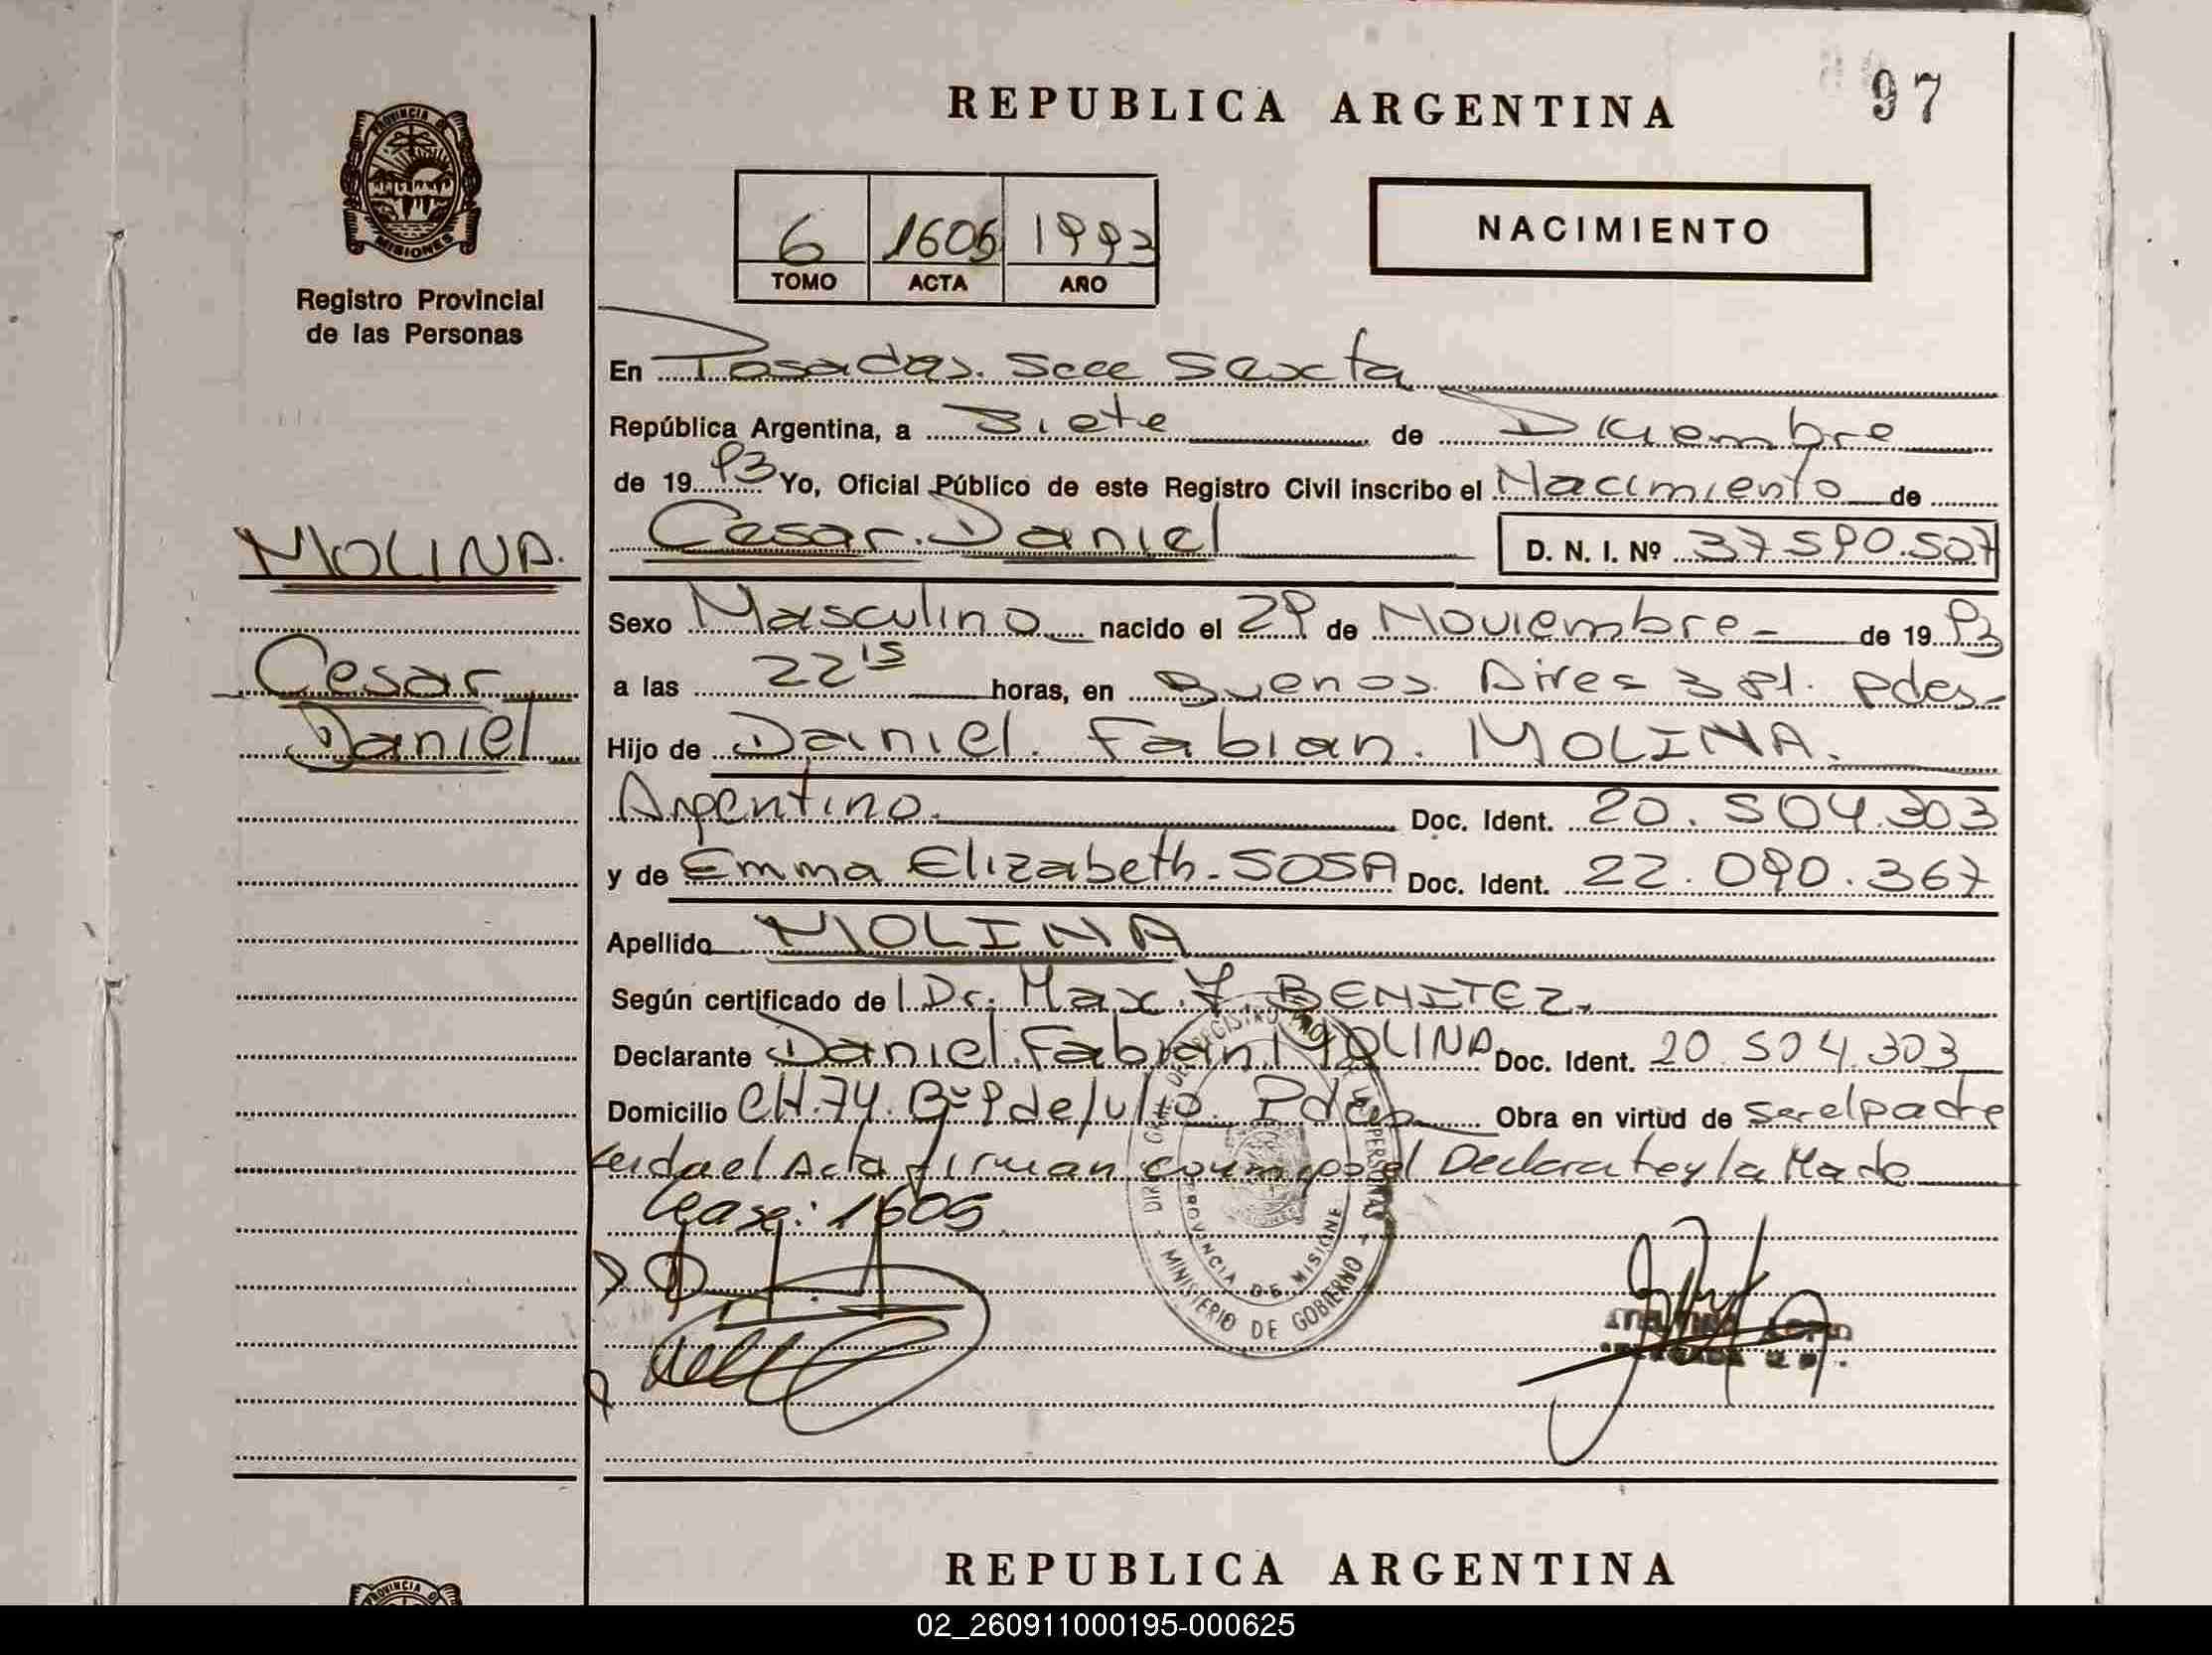 97
REPUBLICA ARGENTINA
PROVINCIA DE
MISIONES
Registro Provincial
de las Personas
6 1605 1993
TOMO ACTA AÑO
NACIMIENTO
En Posadas. Secc Sexta
República Argentina, a Siete de Diciembre
de 19 93 Yo, Oficial Público de este Registro Civil inscribo el Nacimiento de
MOLINA.
Cesar. Daniel D. N. I. Nº 37.590.507
Sexo Masculino nacido el 29 de Noviembre - de 19 93
Cesar
a las 22 15 horas, en Buenos Aires 381. Pdas-
Daniel
Hijo de Daniel. Fabian. MOLINA.
Argentino. Doc. Ident. 20.504.303
y de Emma Elizabeth - SOSA Doc. Ident. 22.090.367
Apellido MOLINA
Según certificado de l Dr. Max. BENITEZ.
Declarante Daniel. Fabian MOLINA Doc. Ident. 20.504.303
Domicilio CH. 74. Bº 9 de Julio. Pdas Obra en virtud de ser el padre
Leida el Acta firman conmigo el Declarante y la Madre
lease: 1605
DIRECCION DEL REGISTRO PROV. DE LAS PERSONAS
PROVINCIA DE MISIONES
MINISTERIO DE GOBIERNO
REPUBLICA ARGENTINA
PROVINCIA DE
02_260911000195-000625